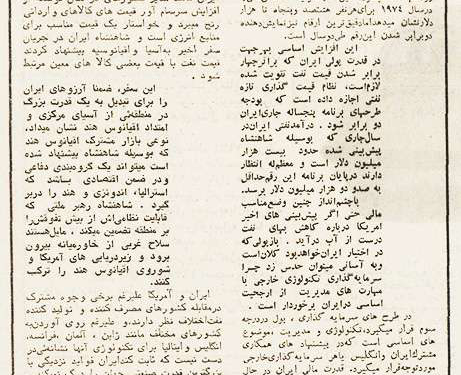 درسال ۱۹۷۴ برای هرنفر هشتصد وپنجاه تا هزار
دلار نشان میدهد امادقیق‌ترین ارقام نیز نمایش‌دهنده
دوبرابر شدن این رقم طی دوسال است.
این افزایش اساسی بهر جهت
در قدرت پولی ایران که براثر چهار
برابر شدن قیمت نفت تقویت شده
لازم است، نظام قیمت گذاری تازه
نفتی اجازه داده است که بودجه
طرحهای برنامه پنجساله جاری ایران
دو برابر شود. درآمد نفتی ایران در
سال جاری که بوسیله شاهنشاه
پیش‌بینی شده حدود بیست هزار
میلیون دلار است و معظم‌له انتظار
دارند در پایان برنامه این رقم حداقل
به صد و دو هزار میلیون دلار برسد.
باچشم‌انداز چنین وضع مناسب
مالی حتی اگر پیش‌بینی های اخیر
امریکا درباره کاهش بهای نفت
درست از آب درآید. باز پولی که
در اختیار ایران خواهد بود کلان است
و به آسانی میتوان حدس زد چرا
سرمایه‌گذاری تکنولوژی خارجی یا
مهارت های مدیریت از ارجحیت
اساسی در ایران برخوردار است.
در طرح های سرمایه گذاری، پول در درجه
سوم قرار میگیرد، تکنولوژی و مدیریت، موضوع
های اساسی است که در پیشنهاد های همکاری
مشترک ایران وانگلیس یا هر سرمایه‌گذاری خارجی
مورد توجه قرار میگیرد، قدرت مالی ایران در حال
افزایش سرسام آور قیمت های کالاهای وارداتی
رنج میبرد و خواستار یک قیمت مناسب برای
منابع انرژی است و شاهنشاه ایران در جریان
سفر اخیر به آسیا و اقیانوسیه پیشنهاد کردند
قیمت نفت با قیمت بعضی کالا های معین مرتبط
شود.
این سفر، ضمنا آرزوهای ایران
را برای تبدیل به یک قدرت بزرگ
در منطقه‌ئی از آسیای مرکزی و
امتداد اقیانوس هند نشان میداد،
نوعی بازار مشترک اقیانوس هند
که بوسیله شاهنشاه پیشنهاد شده
است میتواند یک گروه‌بندی دفاعی
و در ضمن اقتصادی باشد که
استرالیا، اندونزی و هند را در بر
گیرد. شاهنشاه رهبر ملتی که
قابلیت نظامی‌اش از پیش تفوقش را
بر منطقه تضمین میکند، مایل هستند
سلاح غربی از خاورمیانه بیرون
رود و زیردریایی های آمریکا و
شوروی اقیانوس هند را ترک
کنند.
ایران و آمریکا علیرغم برخی وجوه مشترک
در مقابله کشورهای مصرف کننده و تولید کننده
نفت اختلاف نظر دارند، و علیرغم روی آوردن به
کشورهای مختلف مانند ژاپن، آلمان، فرانسه،
انگلیس وایتالیا برای تکنولوژی آنها نشانه‌ئی در
دست نیست که ثابت کند ایران فواید نزدیکی با